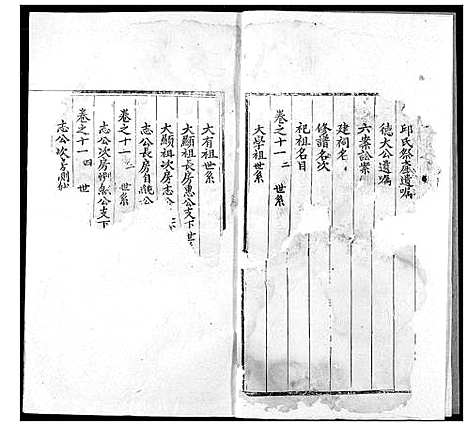 邱氏祭產遺囑
德大公遺囑
六案訟案
建祠名
修譜名次
祀祖名目
卷之十一 二 世系
大學祖世系
大有祖世系
大顯祖長房惠公支下世
大顯祖次房志公
志公長房自純公
卷之十一 三 世系
志公次房卿公支下
卷之十一 四 世
志公次房則仙